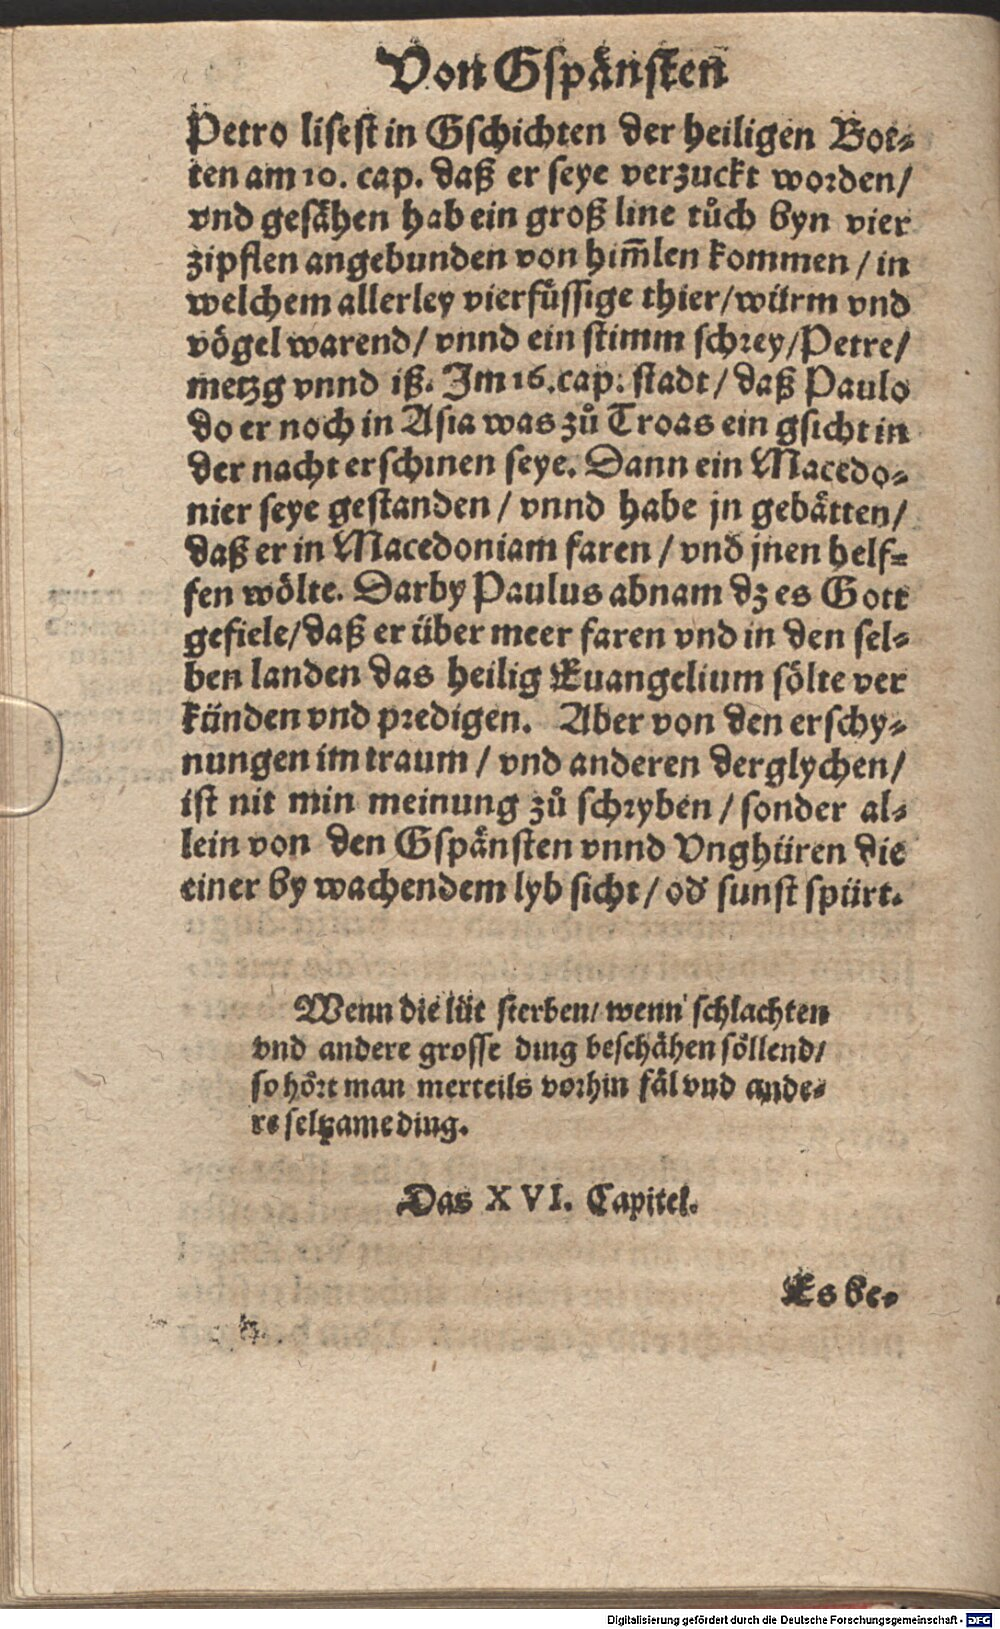 Von Gspänsten
Petro lisest in Gschichten der heiligen Bot⸗
ten am 10. cap. daß er seye verzuckt worden/
vnd gesähen hab ein groß line tůch byn vier
zipflen angebunden von him̃len kommen / in
welchem allerley vierfüssige thier/würm vnd
vögel warend/ vnnd ein stimm schrey/Petre/
metzg vnnd iß. Im 16.cap. stadt/ daß Paulo
do er noch in Asia was zů Troas ein gsicht in
der nacht erschinen seye. Dann ein Macedo⸗
nier seye gestanden / vnnd habe jn gebätten/
daß er in Macedoniam faren / vnd jnen helf⸗
fen wölte. Darby Paulus abnam dz es Gott
gefiele/daß er über meer faren vnd in den sel⸗
ben landen das heilig Euangelium sölte ver
künden vnd predigen. Aber von den erschy⸗
nungen im traum / vnd anderen derglychen/
ist nit min meinung zů schryben / sonder al⸗
lein von den Gspänsten vnnd Vnghüren die
einer by wachendem lyb sicht/ od̃ sunst spürt.
Wenn die lüt sterben/ wenn schlachten
vnd andere grosse ding beschähen söllend/
so hört man merteils vorhin fäl vnd ande⸗
re seltzame ding.
Das XVI. Capitel.
Es be⸗
Digitalisierung gefördert durch die Deutsche Forschungsgemeinschaft - DFG